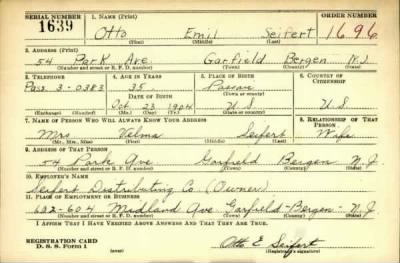 SERIAL NUMBER 1. NAME (Print) ORDER NUMBER
1639 Otto Emil Seifert 1696
(First) (Middle) (Last)
2. ADDRESS (Print)
54 Park Ave Garfield Bergen N.J.
(Number and street or R. F. D. number) (Town) (County) (State)
3. TELEPHONE 4. AGE IN YEARS 5. PLACE OF BIRTH 6. COUNTRY OF CITIZENSHIP
Pass. 3-0383 35 Passaic
DATE OF BIRTH (Town or county)
Oct 23 1904 U S U S
(Exchange) (Number) (Mo.) (Day) (Yr.) (State or country)
7. NAME OF PERSON WHO WILL ALWAYS KNOW YOUR ADDRESS 8. RELATIONSHIP OF THAT PERSON
Mrs Velma Seifert Wife
(Mr., Mrs., Miss) (First) (Middle) (Last)
9. ADDRESS OF THAT PERSON
54 Park Ave Garfield Bergen N.J.
(Number and street or R. F. D. number) (Town) (County) (State)
10. EMPLOYER'S NAME
Seifert Distributing Co (Owner)
11. PLACE OF EMPLOYMENT OR BUSINESS
602-604 Midland Ave Garfield-Bergen-N.J.
(Number and street or R. F. D. number) (Town) (County) (State)
I AFFIRM THAT I HAVE VERIFIED ABOVE ANSWERS AND THAT THEY ARE TRUE.
REGISTRATION CARD
D. S. S. Form 1 (over) Otto E Seifert
(Registrant's signature)